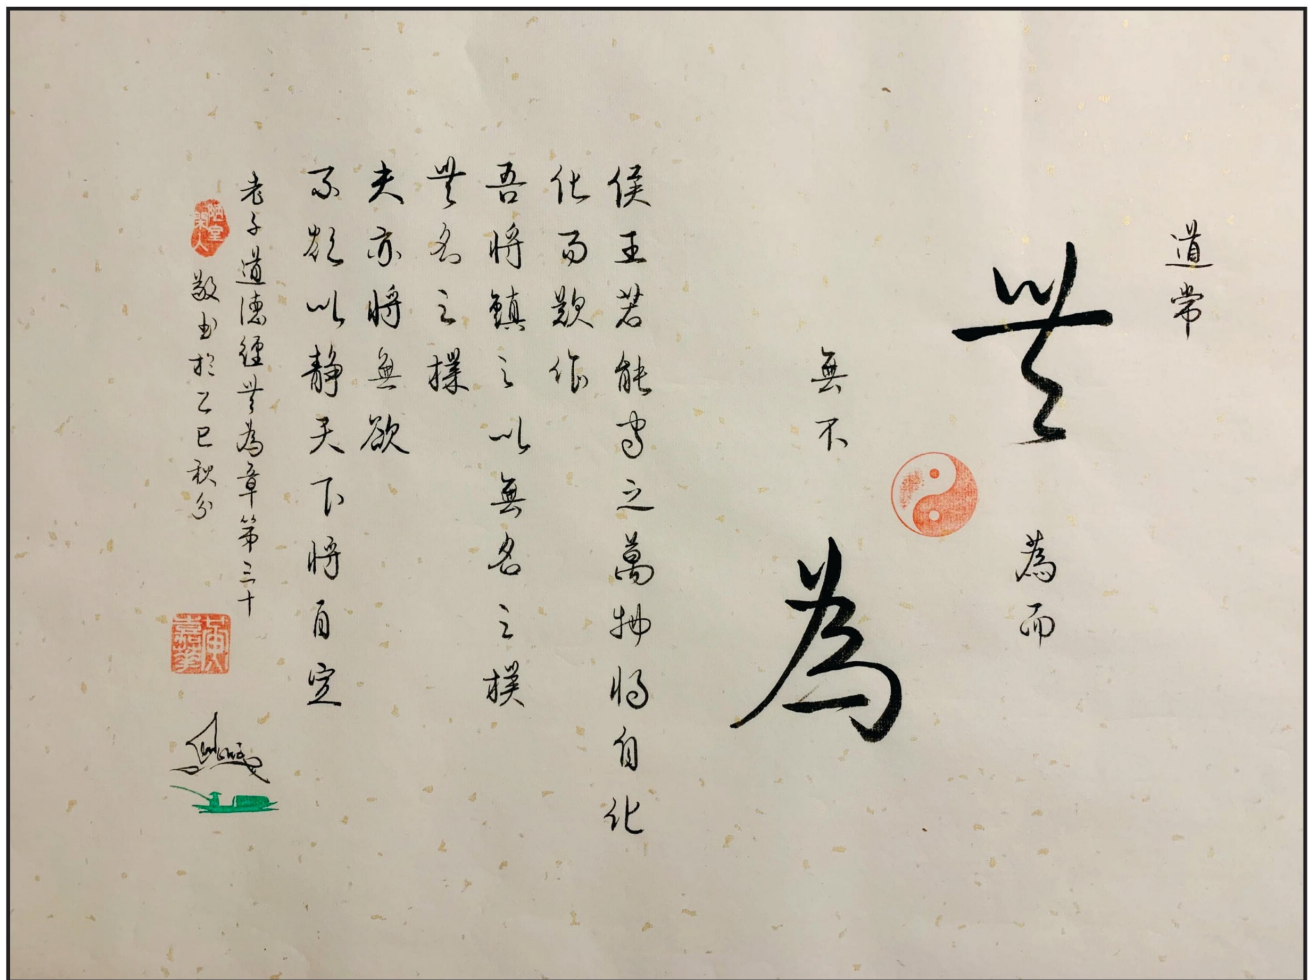 道常
無
為而
無不
為
侯王若能守之萬物將自化
化而欲作
吾將鎮之以無名之樸
無名之樸
夫亦將無欲
不欲以靜天下將自定
老子道德經無為章第三十
陋室閑人
敬書於乙巳秋分
黃嘉華